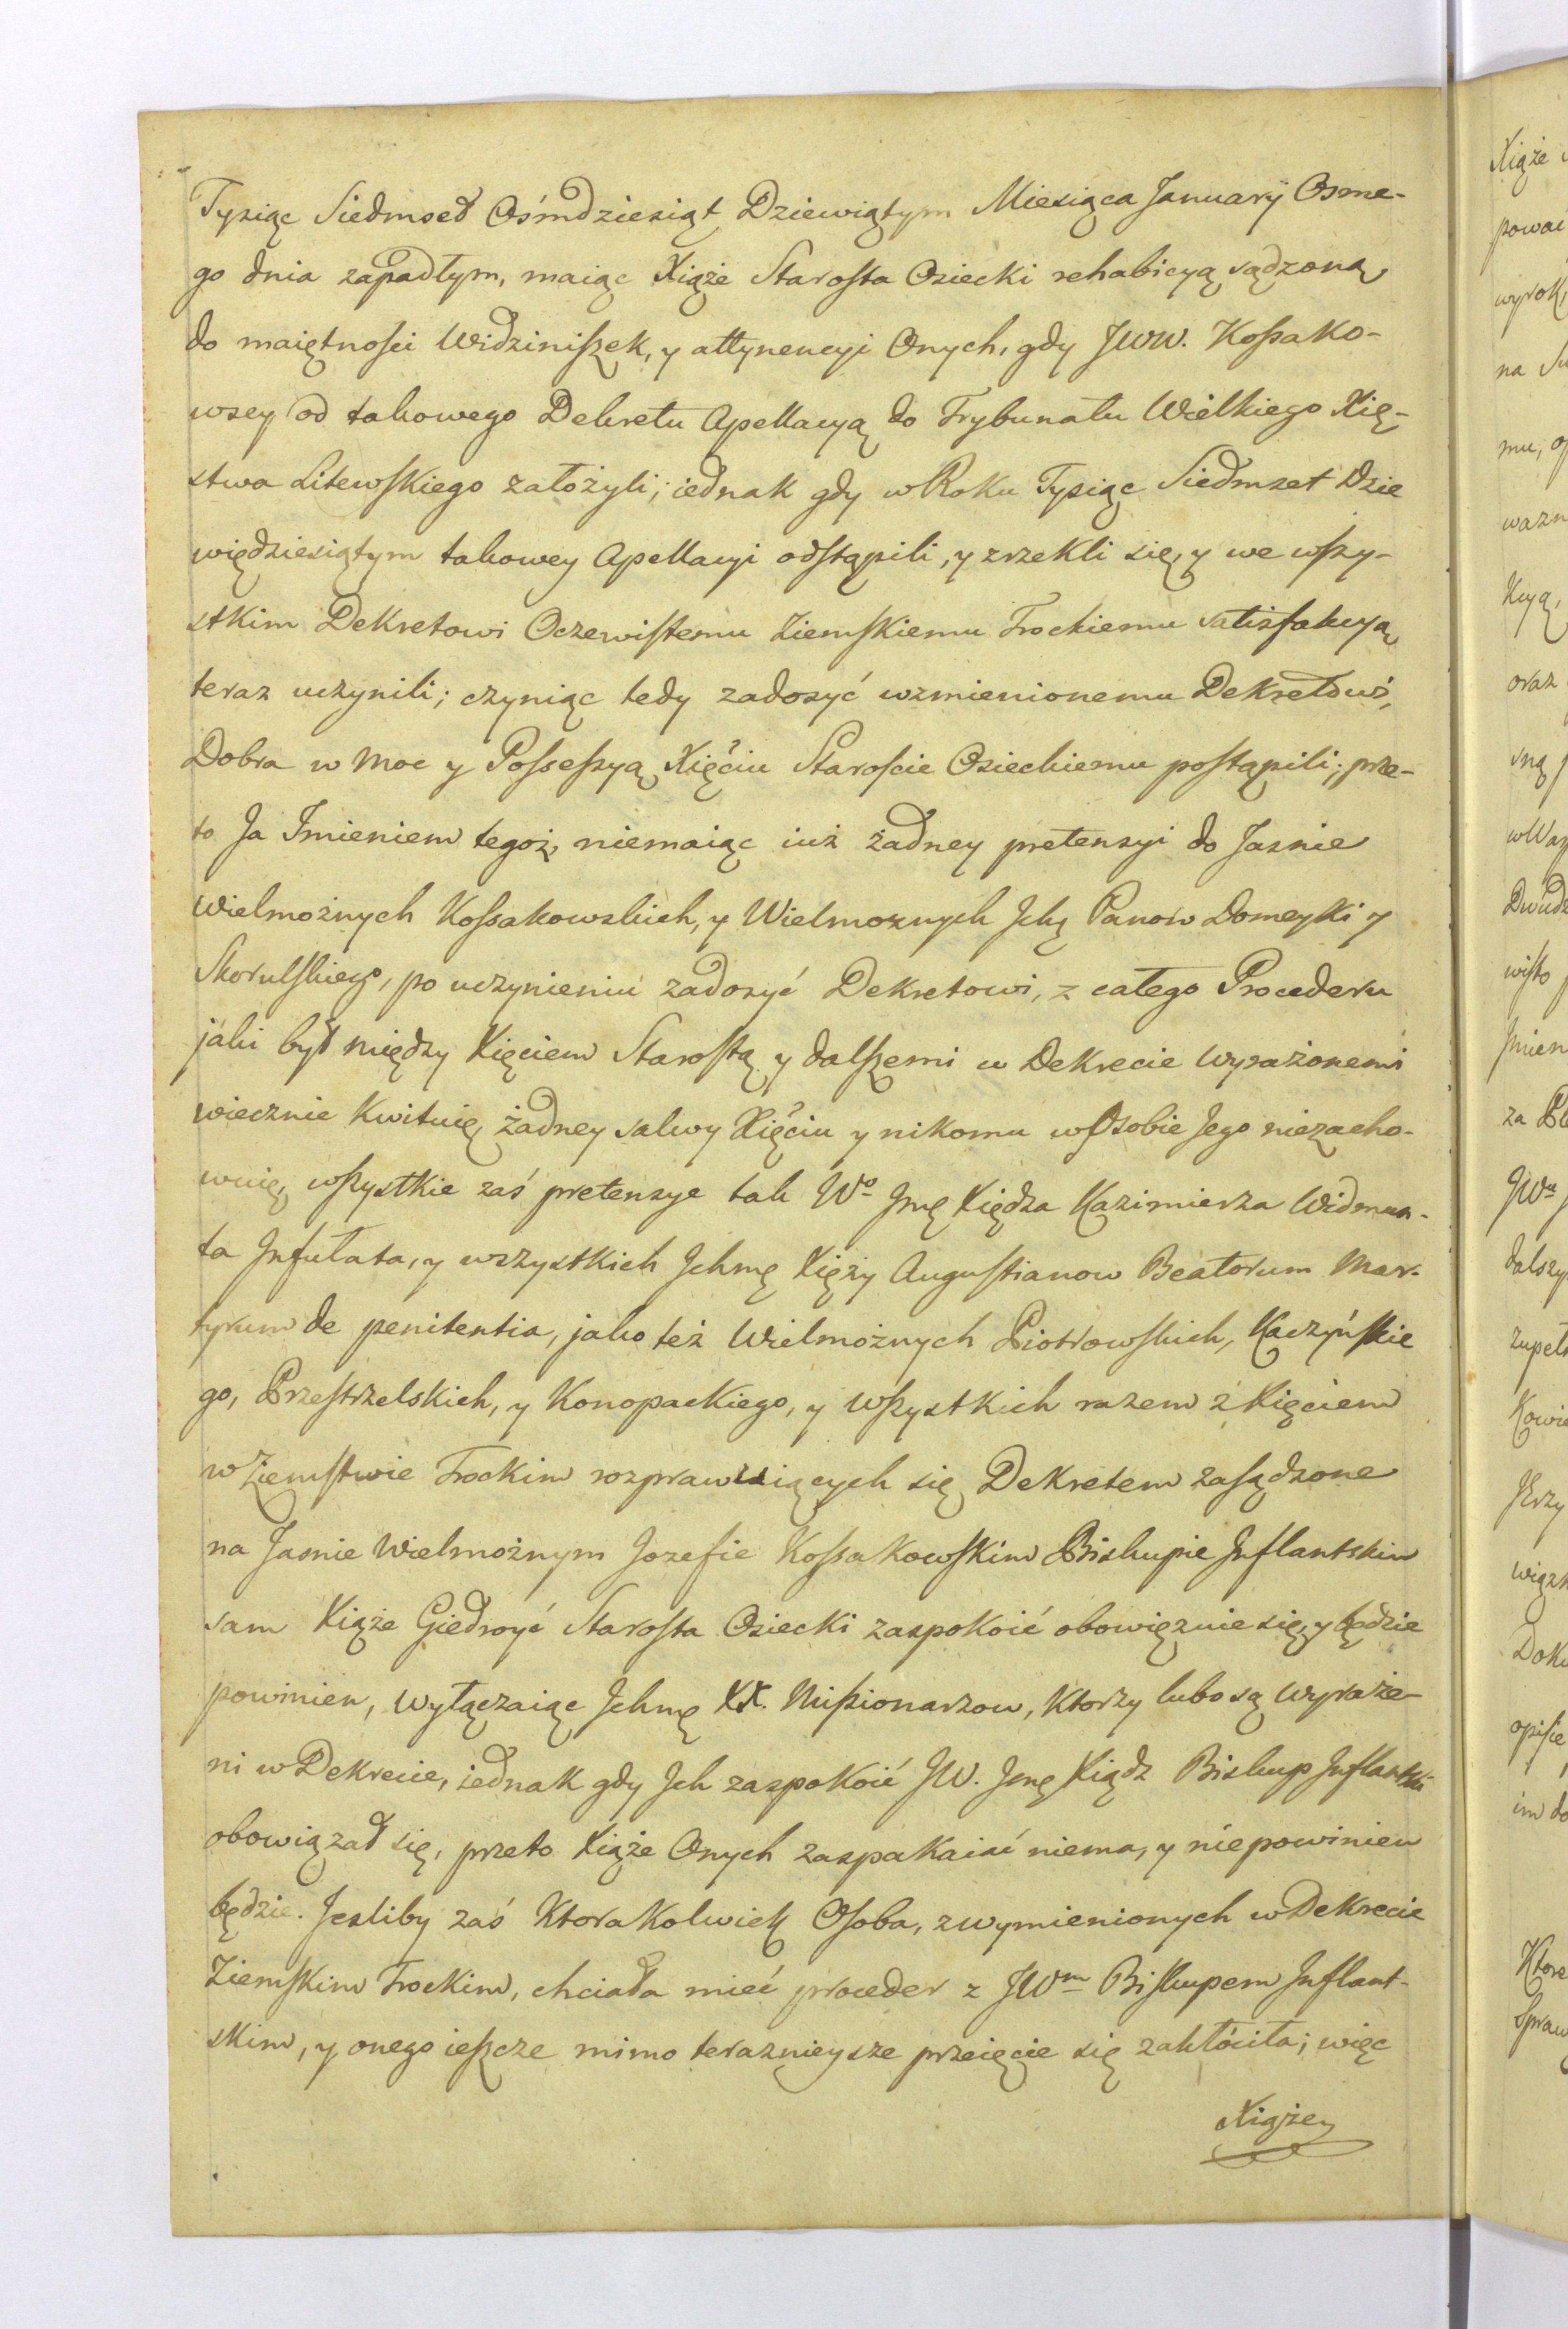 Tysiąc Siedmset Ośmdziesiąt Dziewiątym Miesiąca Januarij Osme-
go dnia zapadłym, maiąc Xiąże Starosta Osiecki rehabicyą sądzoną
do maiętnosci Widziniszek, y attynencyi Onych, gdy JWW. Kossako-
wscy od takowego Dekretu Apellacyą do Trybunału Wielkiego Xię-
stwa Litewskiego założyli; iednak gdy w Roku Tysiąc Siedmset Dzie
więdziesiątym takowey Apellacyi odstąpili, y zrzekli się, y we wszy-
stkim Dekretowi Oczewistemu Ziemskiemu Trockiemu satisfakcyą
teraz uczynili; czyniąc tedy zadosyć wzmienionemu Dekretowi,
Dobra w Moc y Possessyą Xięciu Staroscie Osieckiemu postąpili; prze-
to Ja Imieniem tegoż, niemaiąc iuż żadney pretensyi do Jasnie
Wielmożnych Kossakowskich, y Wielmoznych Ichę Panow Domeyki y
Skorulskiego, po uczynieniu zadosyć Dekretowi, z całego Procederu
jaki był między Xięciem Starostą y dalszemi w Dekrecie wyrażonemi
wiecznie Kwituię, żadney salwy Xięciu y nikomu w Osobie Jego niezacho-
wuię, wszystkie zaś pretensye tak Wo Jmę Xiędza Kazimierza Widman-
ta Infułata, y wszystkich Ichmę Xięży Augustianow Beatorum Mar-
tyrum de penitentia, jako też Wielmożnych Piotrowskich, Kaczyńskie
go, Przestrzelskich, y Konopackiego, y wszystkich razem z Xięciem
w Ziemstwie Trockim rozprawuiących się Dekretem zasądzone
na Jasnie Wielmożnym Jozefie Kossakowskim Biskupie Inflantskim
sam Xiąże Giedroyć Starosta Osiecki zaspokoić obowięzuie się, y będzie
powinien, wyłączaiąc Ichmę XX. Missionarzow, Ktorzy lubo są wyraże-
ni w Dekrecie, iednak gdy Ich zaspokoić JW. Jmę Xiądz Biskup Inflantski
obowiązał się, przeto Xiąże Onych zaspakaiać niema, y niepowinien
będzie. Jesliby zaś Ktorakolwiek Osoba, z wymienionych w Dekrecie
Ziemskim Trockim, chciała mieć proceder z JWm Biskupem Inflant-
skim, y onego ieszcze mimo teraznieysze przeięcie się zakłóciła; więc
Xiąże

Xiąże
powai
wyrok
na
mu,
wazn
Kcyą,
oraz
sną
w Wag
Dwudz
wisto
Jmien
za
JWu
dalszy
zupeł
Kowie
Wiąz
Doku
opisie
im do
Ktore
Spraw